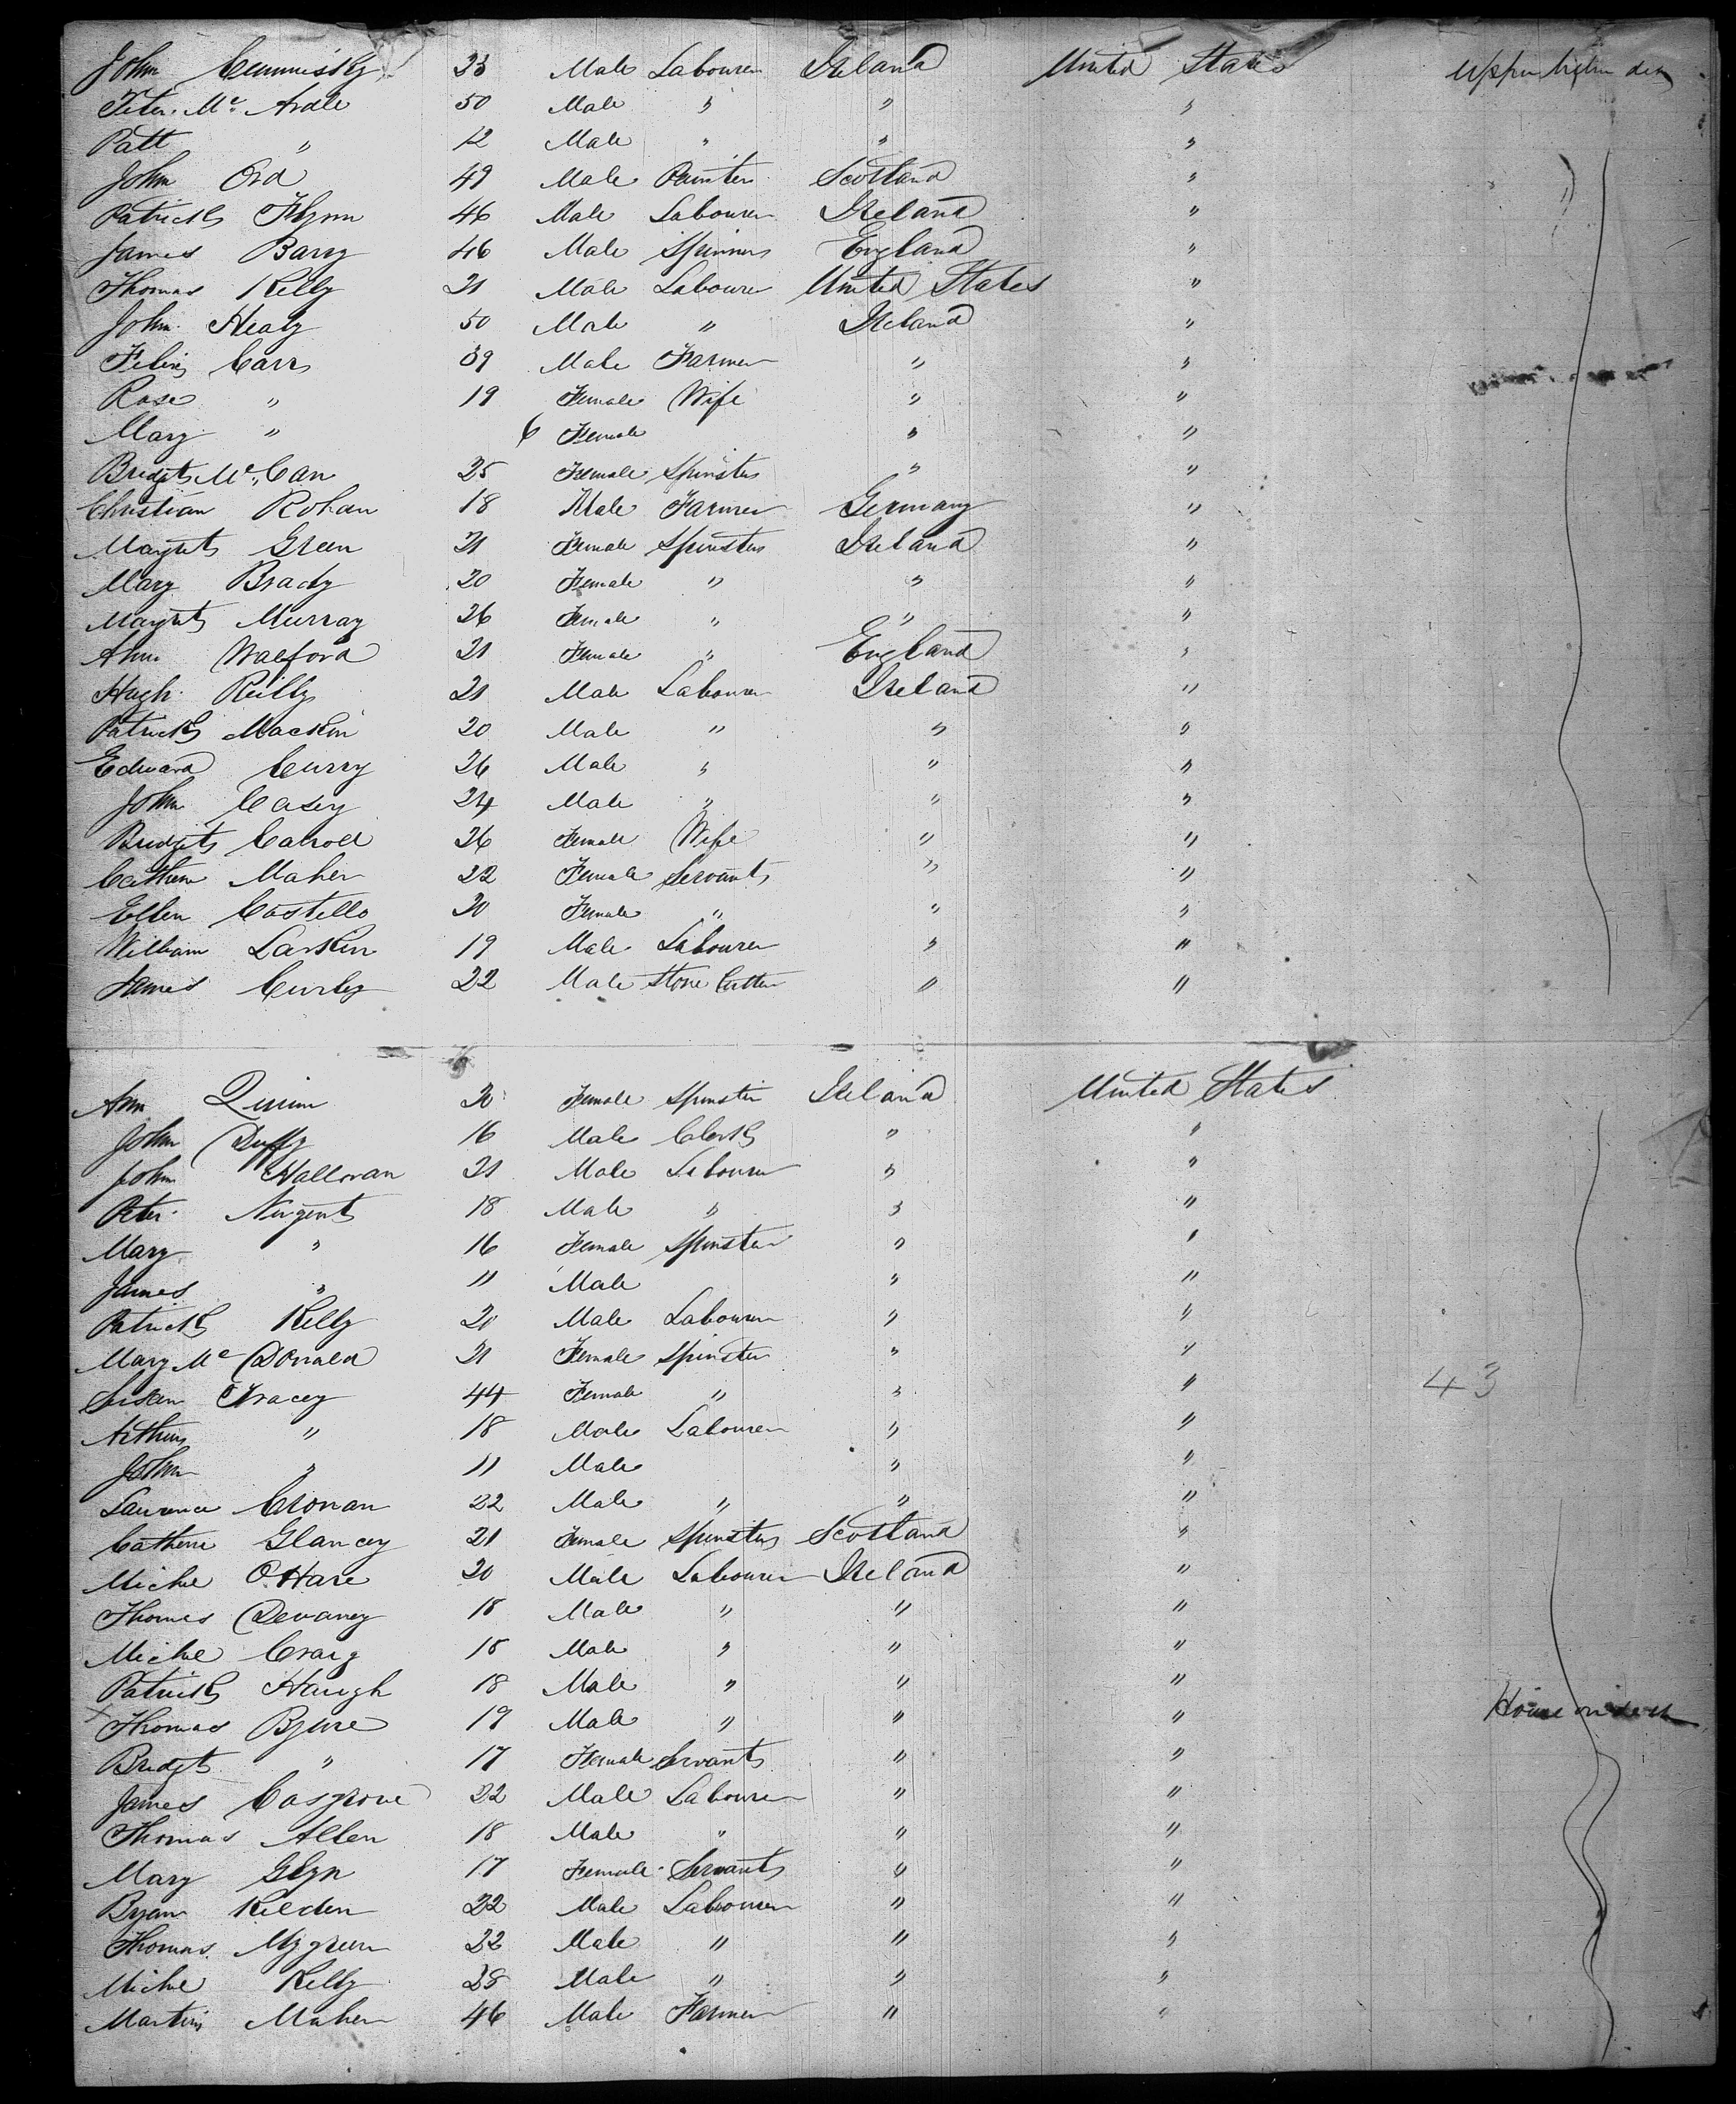 John Cummisky 23 Male Labourer Ireland United States Upper
Peter Mc Ardle 50 Male " " "
Patt " 12 Male " " "
John Ord 49 Male Painter Scotland "
Patrick Flynn 46 Male Labourer Ireland "
James Barry 46 Male Spinner England "
Thomas Kelly 21 Male Labourer United States "
John Healy 50 Male " Ireland "
Felix Carr 39 Male Farmer " "
Rose " 19 Female Wife " "
Mary " 6 Female " "
Bridget Mc Can 25 Female Spinster " "
Christian Rohan 18 Male Farmer Germany "
Margret Green 21 Female Spinster Ireland "
Mary Brady 20 Female " " "
Margret Murray 26 Female " " "
Ann Walford 21 Female " England "
Hugh Reilly 21 Male Labourer Ireland "
Patrick Mackin 20 Male " " "
Edward Curry 26 Male " " "
John Casey 24 Male " " "
Bridget Carroll 26 Female Wife " "
Cathrine Maher 22 Female Servant " "
Ellen Costello 20 Female " " "
William Larkin 19 Male Labourer " "
James Curley 22 Male Stone Cutter " "
Ann Quinn 20 Female Spinster Ireland United States
John Duffy 16 Male Clerk " "
John Halloran 21 Male Labourer " "
Peter Nugent 18 Male " " "
Mary " 16 Female Spinster " "
James " 11 Male " "
Patrick Kelly 20 Male Labourer " "
Mary Mc Donald 21 Female Spinster " "
Susan Tracey 44 Female " " " 43
Arthur " 18 Male Labourer " "
John " 11 Male " "
Laurence Cronan 22 Male " " "
Catherine Glancey 21 Female Spinster Scotland "
Miche O'Hare 20 Male Labourer Ireland "
Thomas Devaney 18 Male " " "
Miche Craig 18 Male " " "
Patrick Haugh 18 Male " " "
Thomas Byrne 19 Male " " " House on deck
Bridget " 17 Female Servant " "
James Cosgrove 22 Male Labourer " "
Thomas Allen 18 Male " " "
Mary Glyn 17 Female Servant " "
Bryan Kilden 22 Male Labourer " "
Thomas 22 Male " " "
Miche Kelly 28 Male " " "
Martin Maher 46 Male Farmer " "